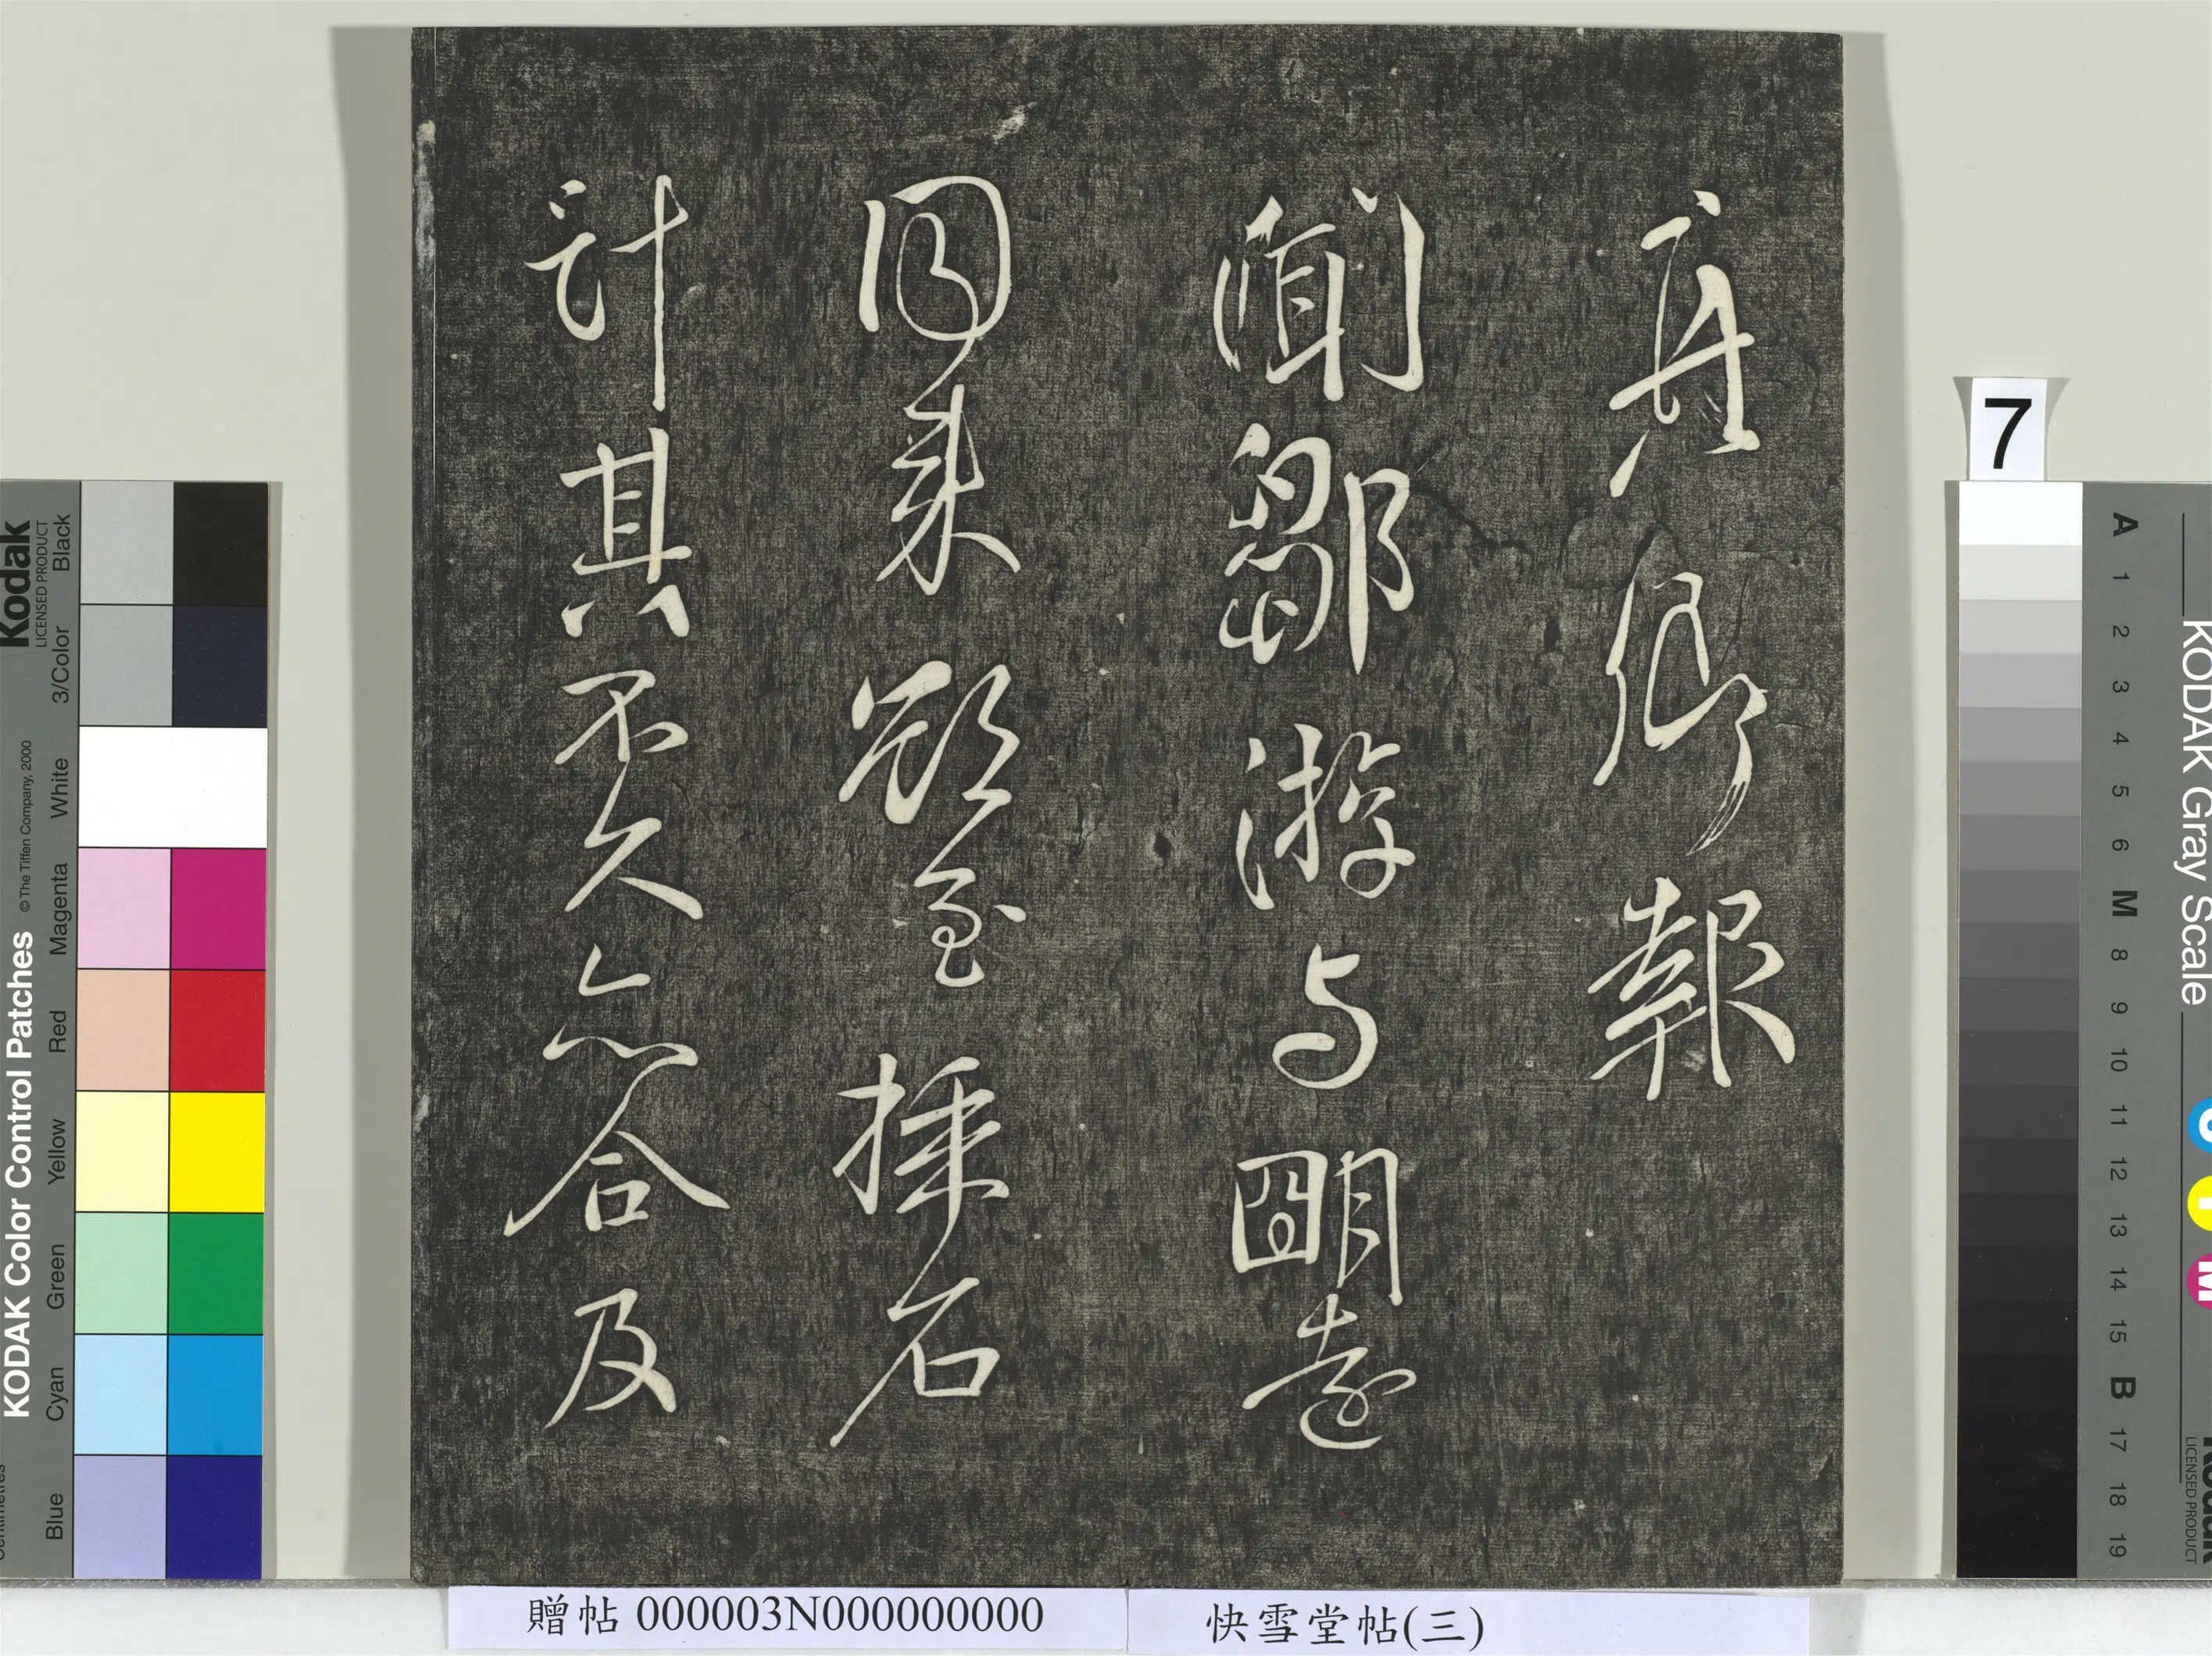 真卿報
聞鄒游与朙遠
同來欲至採石
計其不久亦合及
贈帖 000003N000000000
快雪堂帖(三)
7
KODAK Color Control Patches © The Tiffen Company, 2000
Kodak
LICENSED PRODUCT
Blue Cyan Green Yellow Red Magenta White 3/Color Black
KODAK Gray Scale
A 1 2 3 4 5 6 M 8 9 10 11 12 13 14 15 B 17 18 19
C Y M
Kodak
LICENSED PRODUCT